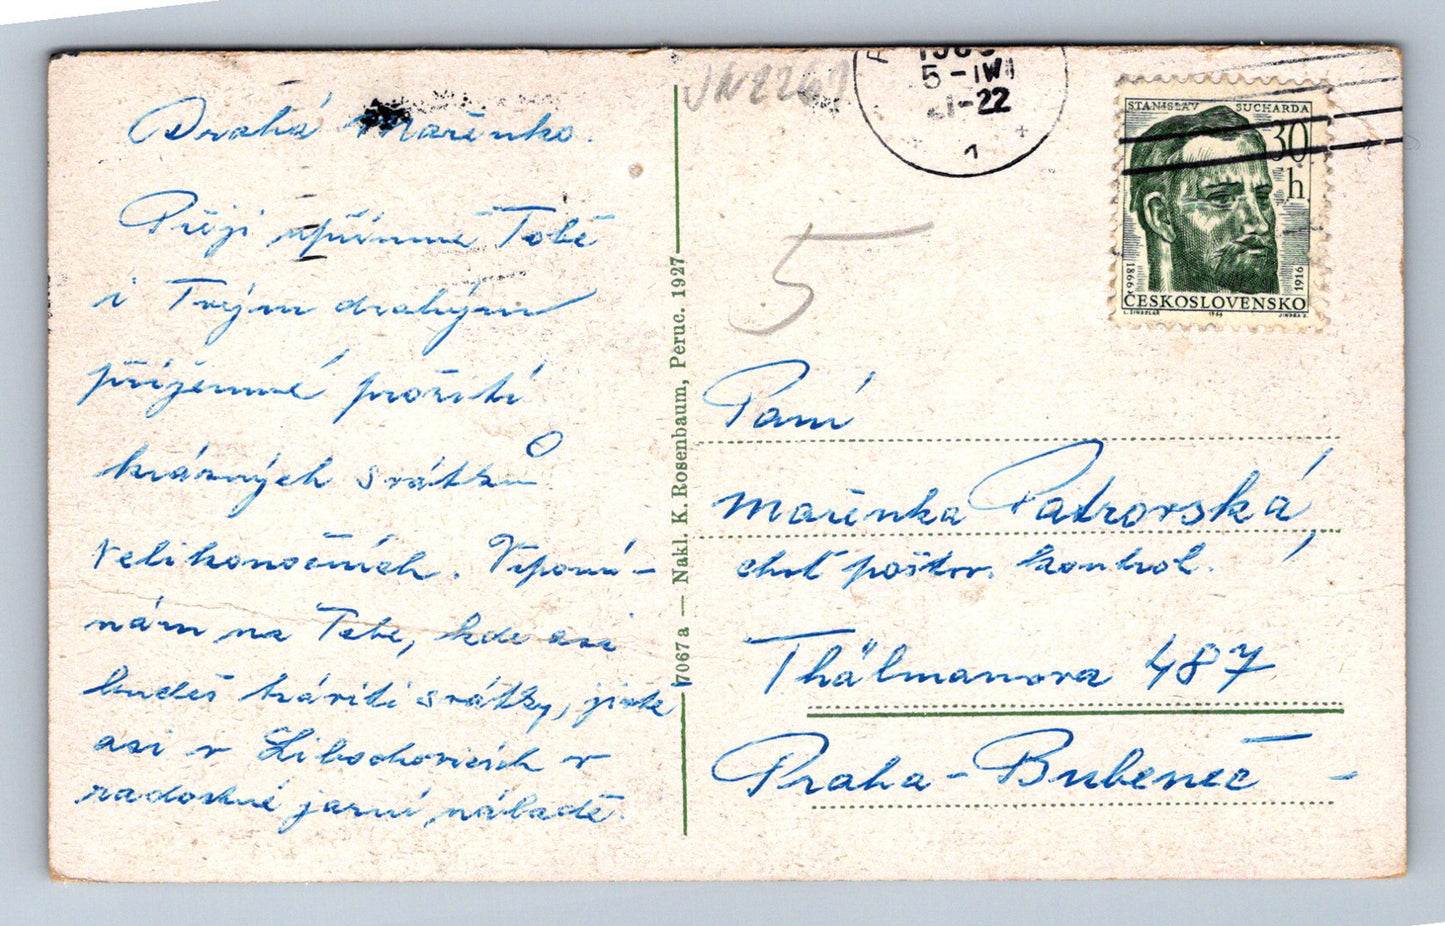 Drahá Mařenko.
Přeji upřímně Tobě
i Tvým drahým
příjemné prožití
krásných svátků
velikonočních. Vzpomí-
nám na Tebe, kde asi
budeš tráviti svátky, jistě
asi v Libochovicích v
radostné jarní náladě.
7067 a — Nakl. K. Rosenbaum, Peruc. 1927
5-IV
21-22
1
STANISLAV SUCHARDA
30
h
1866
1916
ČESKOSLOVENSKO
L. ŠINDELÁŘ 1966 JINDRA S.
5
Paní
Mařenka Patrovská,
choť poštov. kontrol.
Thälmanova 487
Praha - Bubeneč -